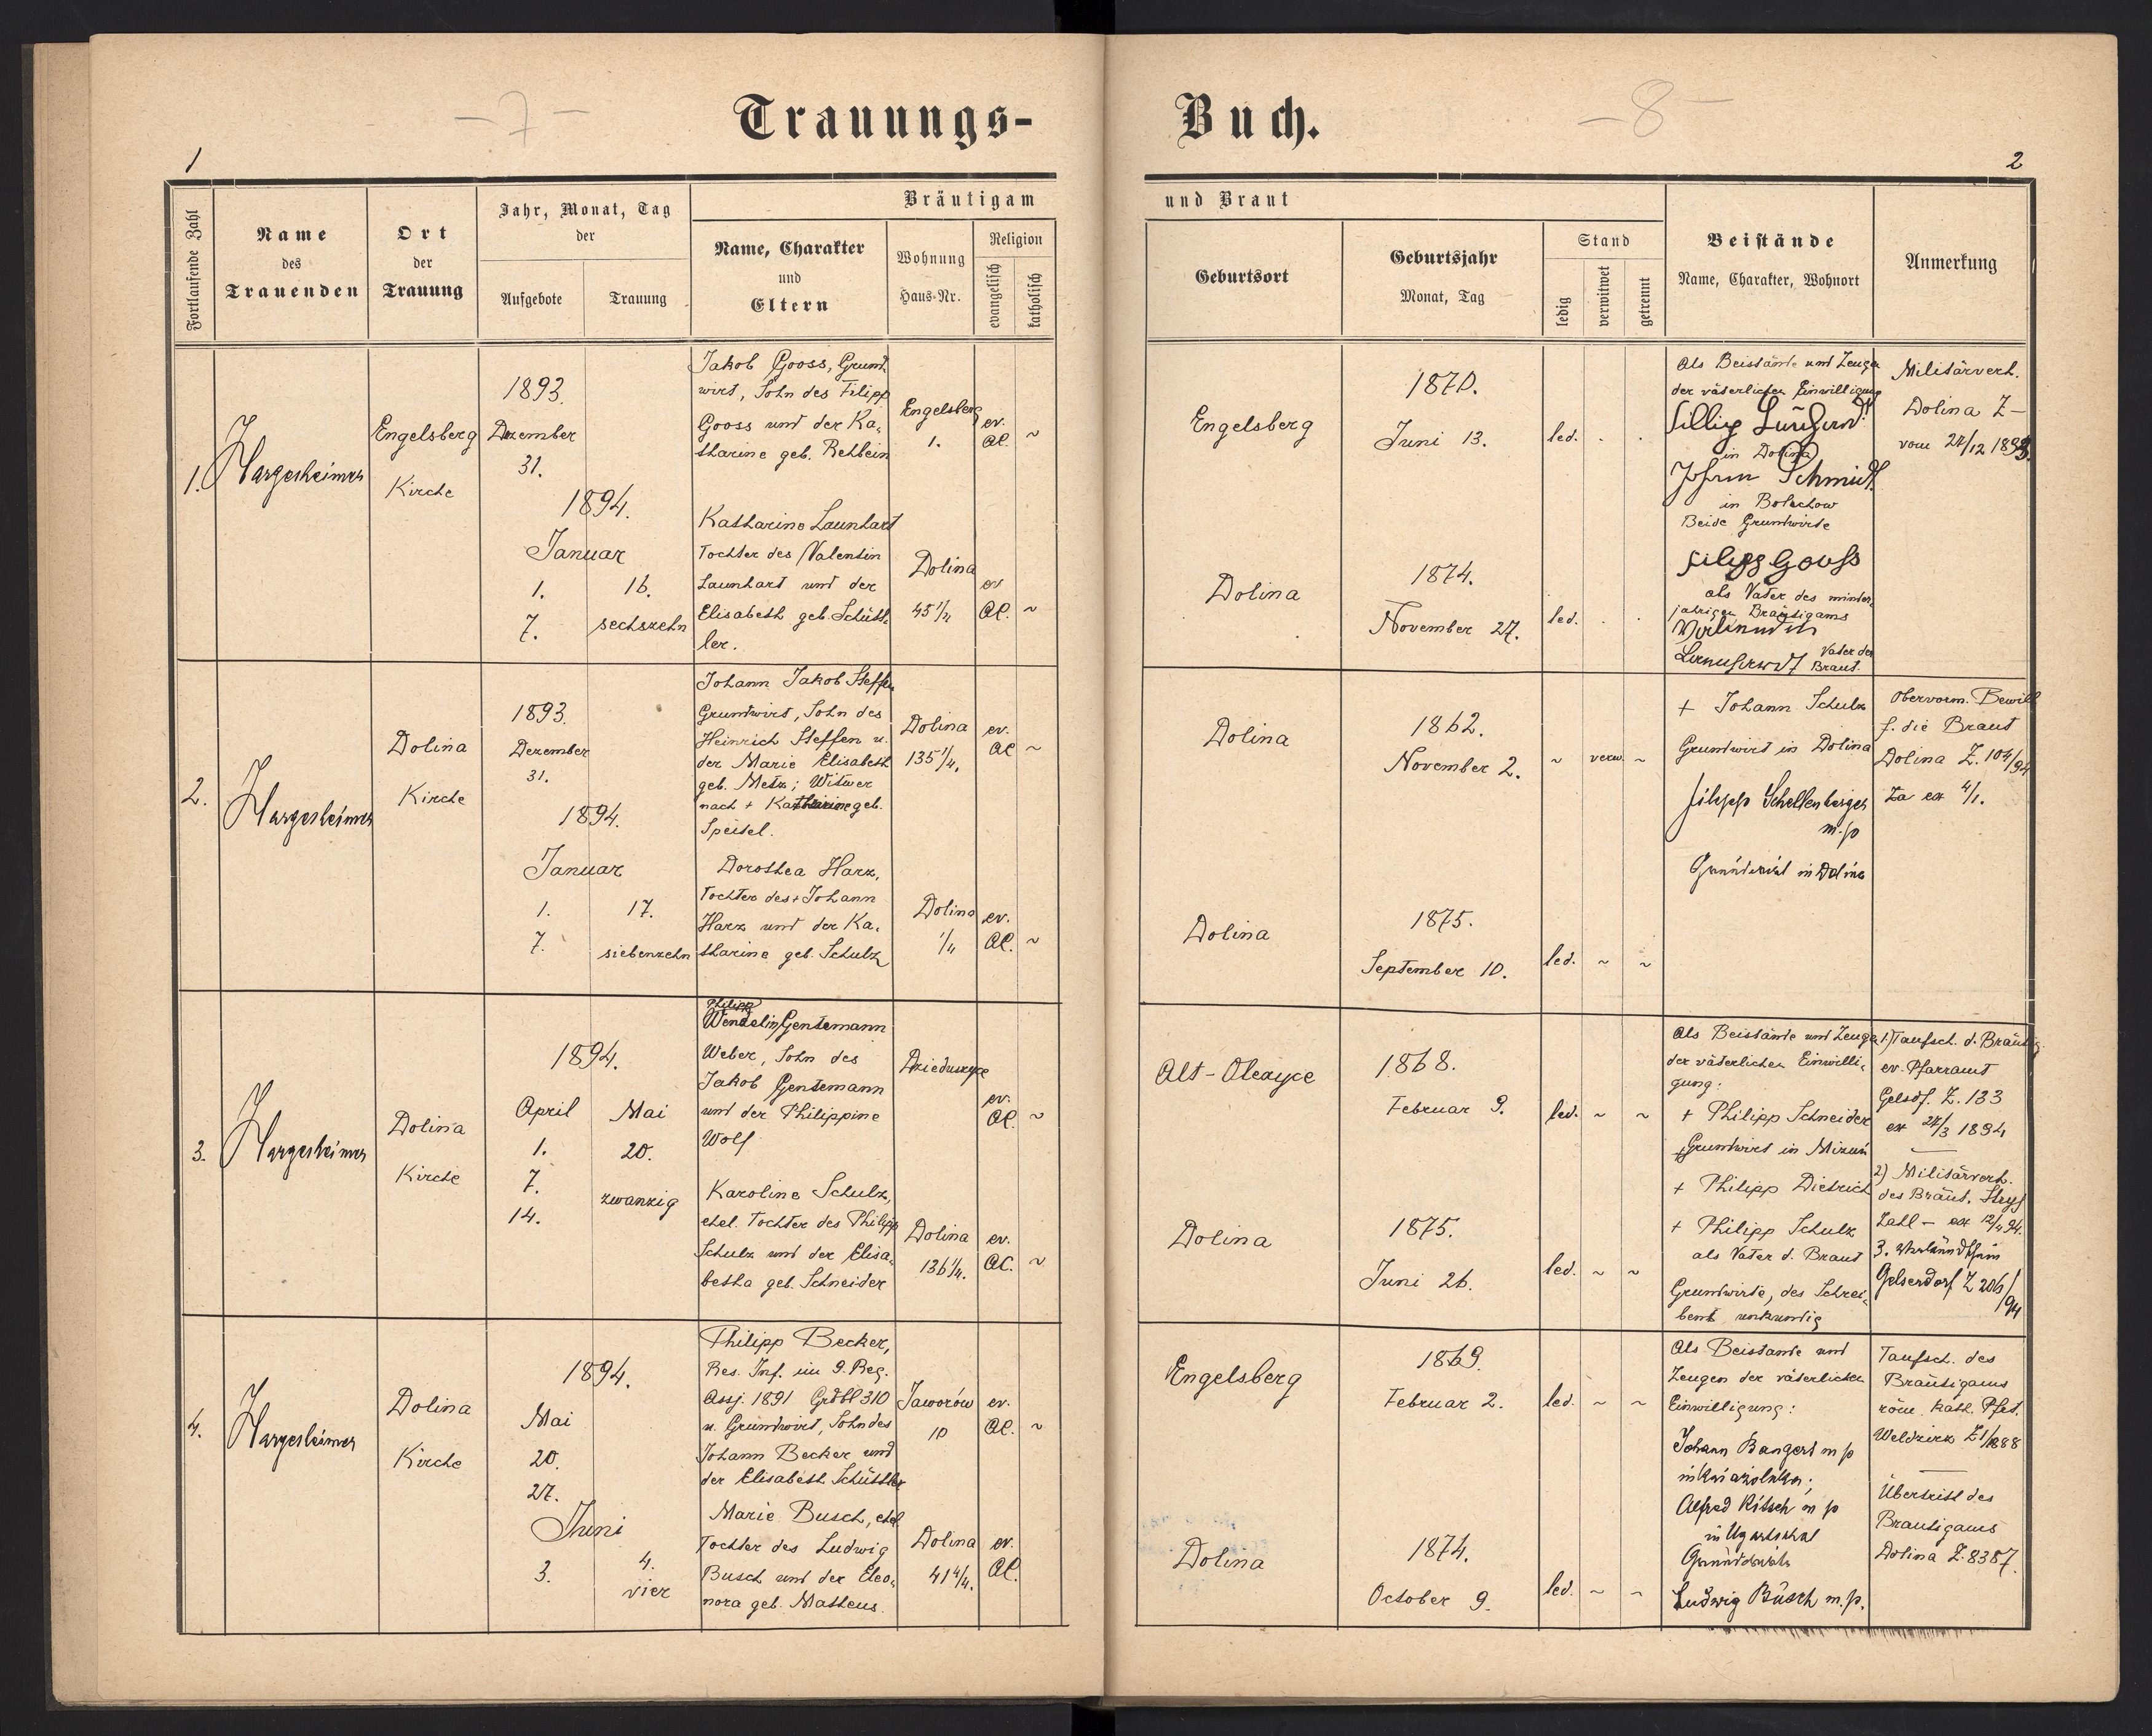 – 7 –
Trauungs-
1
Fortlaufende Zahl
Name
des
Trauenden
Ort
der
Trauung
Jahr, Monat, Tag
der
Aufgebote
Trauung
Bräutigam
Name, Charakter
und
Eltern
Wohnung
Haus-Nr.
Religion
evangelisch
katholisch
1.
Hargesheimer
Engelsberg
Kirche
1893.
Dezember
31.
1894.
Januar
1. 16.
7. sechszehn
Jakob Gooss, Grund
wirt, Sohn des Filipp
Gooss und der Ka-
tharine geb. Rehbein
Engelsberg
1.
ev.
AC. ~
Katharine Launhart
Tochter des Valentin
Launhart und der
Elisabeth geb. Schütt-
ler.
Dolina
45 1/4
ev
AC. ~
2.
Hargesheimer
Dolina
Kirche
1893.
Dezember
31.
1894.
Januar
1. 17.
7. siebenzehn
Johann Jakob Steffen
Grundwirt, Sohn des
Heinrich Steffen u.
der Marie Elisabeth
geb. Metz; Witwer
nach + Katharine geb.
Speisel.
Dolina
135 1/4.
ev.
AC ~
Dorothea Harz,
Tochter des + Johann
Harz und der Ka-
tharine geb. Schulz
Dolina
1/4
ev.
AC. ~
3.
Hargesheimer
Dolina
Kirche
1894.
April Mai
1. 20.
7. zwanzig
14.
Philipp
Wendelin Gentemann
Weber, Sohn des
Jakob Gentemann
und der Philippine
Wolf
Dzieduszyce
ev.
AC. ~
Karoline Schulz,
ehel. Tochter des Philipp
Schulz und der Elisa-
betha geb. Schneider
Dolina
136 1/4.
ev.
AC. ~
4.
Hargesheimer
Dolina
Kirche
1894.
Mai
20.
27.
Juni
3. 4.
vier
Philipp Becker,
Res. Inf. im 9. Reg.
Assj. 1891 Grdbl 310
u. Grundwirt, Sohn des
Johann Becker und
der Elisabeth Schüttler
Jaworów
10
ev.
AC. ~
Marie Busch, ehel.
Tochter des Ludwig
Busch und der Eleo-
nora geb. Matheus.
Dolina
41 4/4.
ev.
AC.
– 8 –
Buch.
2
und Braut
Geburtsort
Geburtsjahr
Monat, Tag
Stand
ledig
verwitwet
getrennt
Beistände
Name, Charakter, Wohnort
Anmerkung
Engelsberg
1870.
Juni 13.
led. . .
Dolina
1874.
November 27.
led. . .
Als Beistände und Zeugen
der väterlichen Einwilligung
in Dolina
Johann Schmidt
in Bolechow
Beide Grundwirte
Filipp Gooss
als Vater des minder-
jährigen Bräutigams
Vater der
Braut.
Militärverh.
Dolina Z –
vom 24/12 1893.
Dolina
1862.
November 2.
~ verw. ~
Dolina
1875.
September 10.
led. ~ ~
+ Johann Schulz
Grundwirt in Dolina
Filipp Schellenberger
m.p
Grundwirt in Dolina
Obervorm. Bewill
f. die Braut
Dolina Z. 104/94
ex 4/1.
Alt-Olexyce
1868.
Februar 9.
led. ~ ~
Dolina
1875.
Juni 26.
led. ~ ~
Als Beistände und Zeugen
der väterlichen Einwilli-
gung:
+ Philipp Schneider
Grundwirt in Mizuń
+ Philipp Dietrich
+ Philipp Schulz
als Vater d. Braut
Grundwirte, des Schrei-
bens unkundig
1) Taufsch. d. Bräutig.
ev. Pfarramt
Gelsdf. Z. 133
ex 24/3 1894
2) Militärverh.
des Bräut. Stryj
Zahl – ex 12/4 94.
3. Verkündschein
Gelsendorf Z 206/94
Engelsberg
1869.
Februar 2.
led. ~ ~
Dolina
1874.
October 9.
led. ~ ~
Als Beistände und
Zeugen der väterlichen
Einwilligung:
Johann Bangert m p
Alfred Ritsch m p
in Ugartsthal
Grundwirte
Ludwig Busch m.p.
Taufsch. des
Bräutigams
röm. kath. Pfct.
Weldzirz Z 1/1888
Übertritt des
Bräutigams
Dolina Z. 8387.